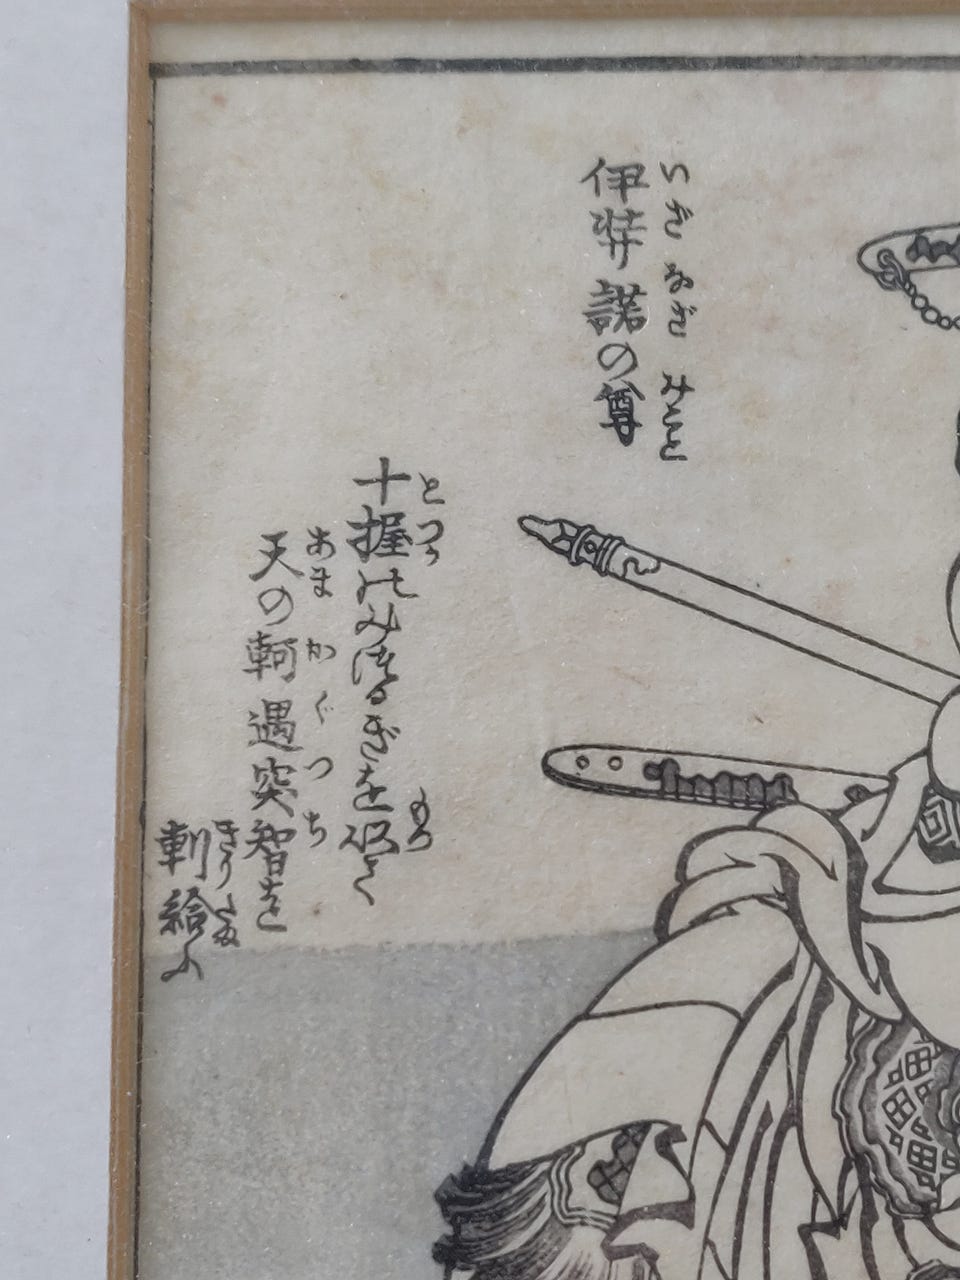 伊弉諾の尊
いざなぎ みこと
十握のみつるぎを以て
とつか もつ
天の軻遇突智を
あま かぐつち
斬給ふ
きりたま